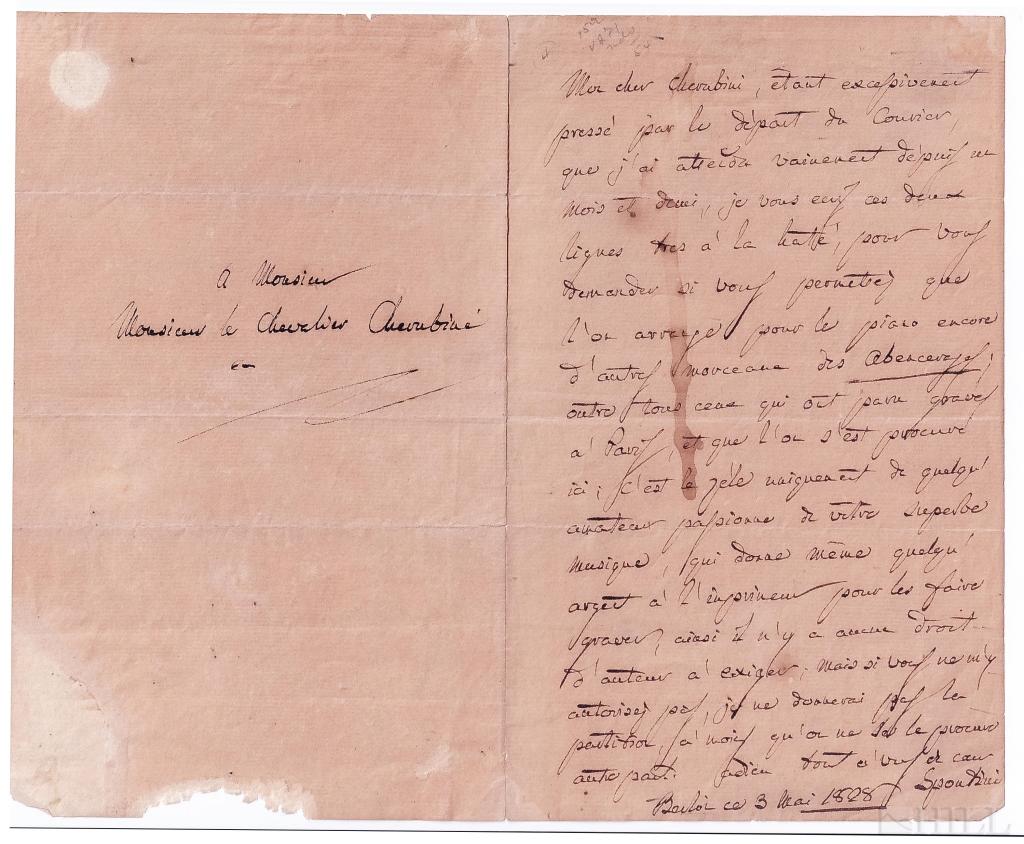 A Monsieur
Monsieur le Chevalier Cherubini
Mon cher Cherubini, étant excessivement
pressé par le départ du Courier,
que j'ai attendu vainement dépuis un
mois et demi, je vous ecris ces deux
lignes très à la hatte, pour vous
demander si vous permettez que
l'on arrange pour le piano encore
d'autres morceaux des Abencerages,
outre tous ceux qui ont paru gravés
à Paris, et que l'on s'est procuré
ici; c'est le zéle uniquement de quelqu'
amateur passionné de vôtre superbe
musique, qui donne même quelqu'
argent à l'imprimeur pour les faire
graver, ainsi il n'y a aucun droit
d'auteur à exiger; mais si vous ne m'y
autorisez pas, je ne donnerai pas la
partition, à moins qu'on ne se le procure
autre part. Adieu tout à vous de cœur
Spontini
Berlin ce 3 Mai 1828